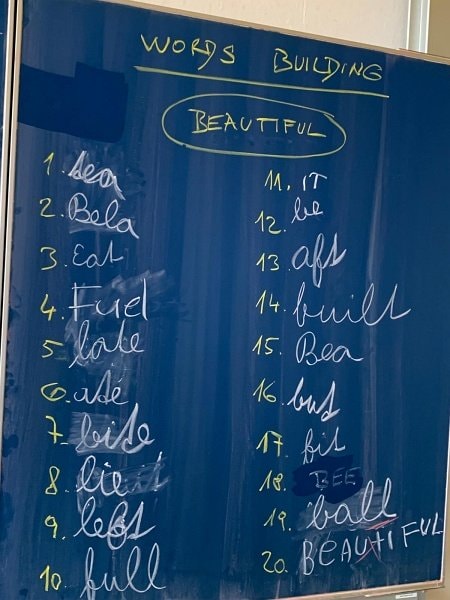 WORDS BUILDING
BEAUTIFUL
1. sea
2. Bela
3. Eat
4. Fuel
5 late
6. até
7. bite
8. lie
9. left
10. full
11. IT
12. be
13. aft
14. built
15. Bea
16. but
17. fit
18. BEE
19. ball
20. BEAUTIFUL